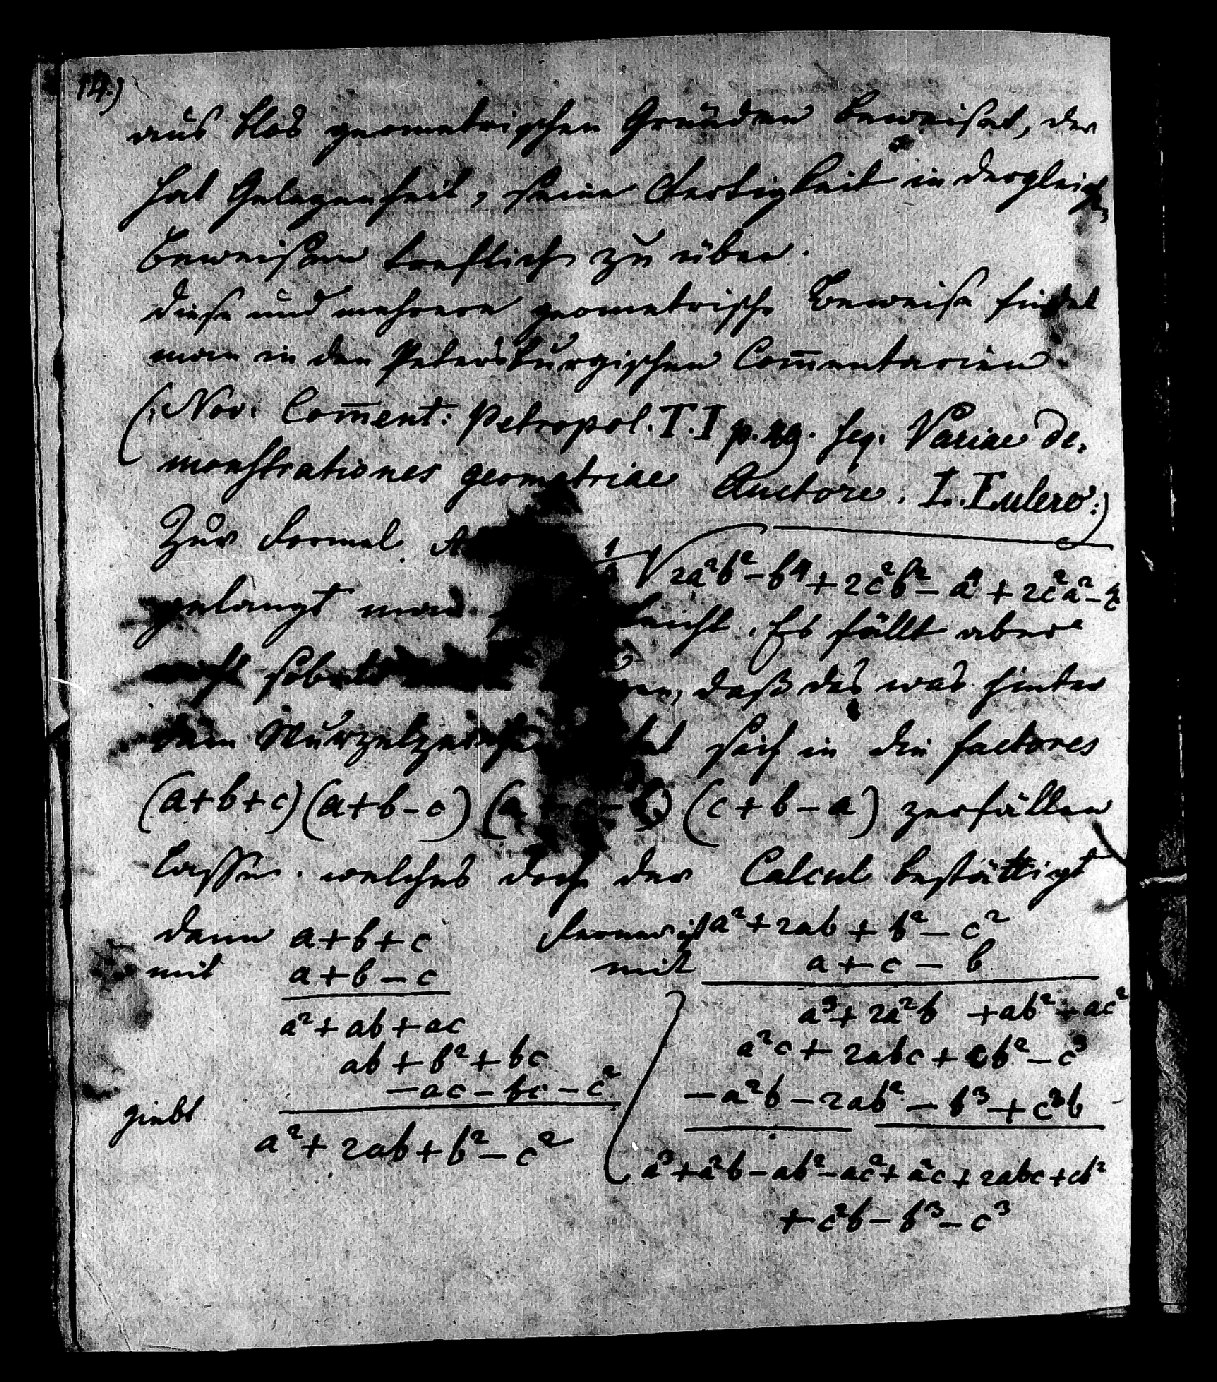 14.)
aus blos geometrischen Gründen beweiset, der
hat Gelegenheit, seine Fertigkeit in dergleich
Beweisen treflich zu üben.
diese und mehrere geometrische Beweise findet
man in den Petersburgischen Com̅entarien
(: Nov. Com̅ent: Petropol. T. I p. 49. seq. Variae de-
monstrationes geometriae Auctore. L. Eulero:)
Zur Formel. A √2a²b²-b⁴+2c²b²-a⁴+2c²a²-c
gelangt man leicht. Es fällt aber
nicht sobald daß das was hinter
dem Wurzelzeich sich in die factores
(a+b+c) (a+b-c) (a (c+b-a) zerfällen
lasse. welches doch der Calcul bestättigt
denn a+b+c
mit a+b-c
a²+ab+ac
ab+b²+bc
-ac-bc-c²
giebt a²+2ab+b²-c²
ferner ist a²+2ab+b²-c²
mit a+c-b
a³+2a²b +ab²-ac²
a²c+2abc+cb²-c³
-a²b-2ab²-b³+c²b
a³+a²b-ab²-ac²+a²c+2abc+cb²
+c²b-b³-c³